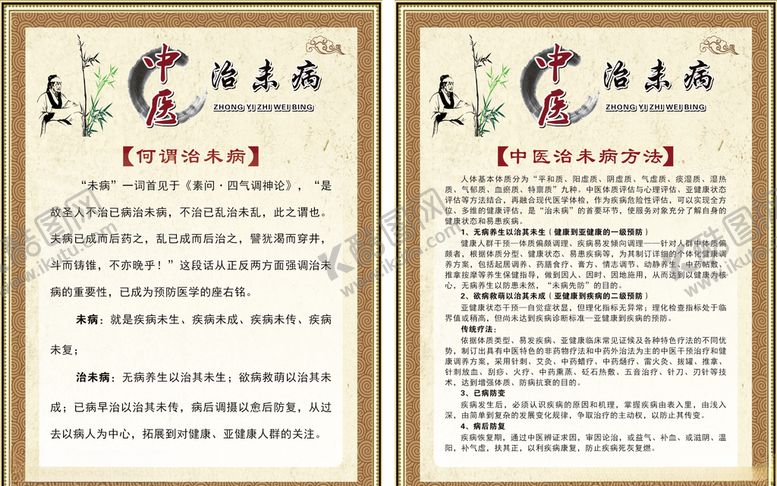 中医
治未病
ZHONG YI ZHI WEI BING
【何谓治未病】
“未病”一词首见于《素问·四气调神论》，“是
故圣人不治已病治未病，不治已乱治未乱，此之谓也。
夫病已成而后药之，乱已成而后治之，譬犹渴而穿井，
斗而铸锥，不亦晚乎！”这段话从正反两方面强调治未
病的重要性，已成为预防医学的座右铭。
未病：就是疾病未生、疾病未成、疾病未传、疾病
未复；
治未病：无病养生以治其未生；欲病救萌以治其未
成；已病早治以治其未传，病后调摄以愈后防复，从过
去以病人为中心，拓展到对健康、亚健康人群的关注。
中医
治未病
ZHONG YI ZHI WEI BING
【中医治未病方法】
人体基本体质分为“平和质、阳虚质、阴虚质、气虚质、痰湿质、湿热
质、气郁质、血瘀质、特禀质”九种。中医体质评估与心理评估、亚健康状态
评估等方法结合，再融合现代医学体检，作为疾病危险性评估，可以实现全方
位、多维的健康评估，是“治未病”的首要环节，使服务对象充分了解自身的
健康状态和易患疾病。
1、无病养生以治其未生（健康到亚健康的一级预防）
健康人群干预—体质偏颇调理、疾病易发倾向调理——针对人群中体质偏
颇者，根据体质分型、健康状态、易患疾病等，为其制订详细的个体化健康调
养方案，包括起居调养、药膳食疗、膏方、情志调节、动静养生、中药帖敷、
推拿按摩等养生保健指导，做到因人、因时、因地施用，从而达到以健康为核
心，无病养生以防患未然，“未病先防”的目的。
2、欲病救萌以治其未成（亚健康到疾病的二级预防）
亚健康状态干预—自觉症状显，但理化指标无异常；理化检查指标处于临
界值或稍高，但尚未达到疾病诊断标准—亚健康到疾病的预防。
传统疗法：
依据体质类型、易发疾病、亚健康临床常见证候及各种特色疗法的不同优
势，制订出具有中医特色的非药物疗法和中药外治法为主的中医干预治疗和健
康调养方案，采用针刺、艾灸、中药蜡疗、中药熥疗、雷火灸、拔罐、推拿、
针刺放血、刮痧、火疗、中药熏蒸、砭石热敷、五音治疗、针刀、刃针等技
术，达到增强体质、防病抗衰的目的。
3、已病防变
疾病发生后，必须认识疾病的原因和机理，掌握疾病由表入里，由浅入
深，由简单到复杂的发展变化规律，争取治疗的主动权，以防止其传变。
4、病后防复
疾病恢复期，通过中医辨证求因，审因论治，或益气、补血、或滋阴、温
阳，补气虚，扶其正，以利疾病康复，防止疾病死灰复燃。